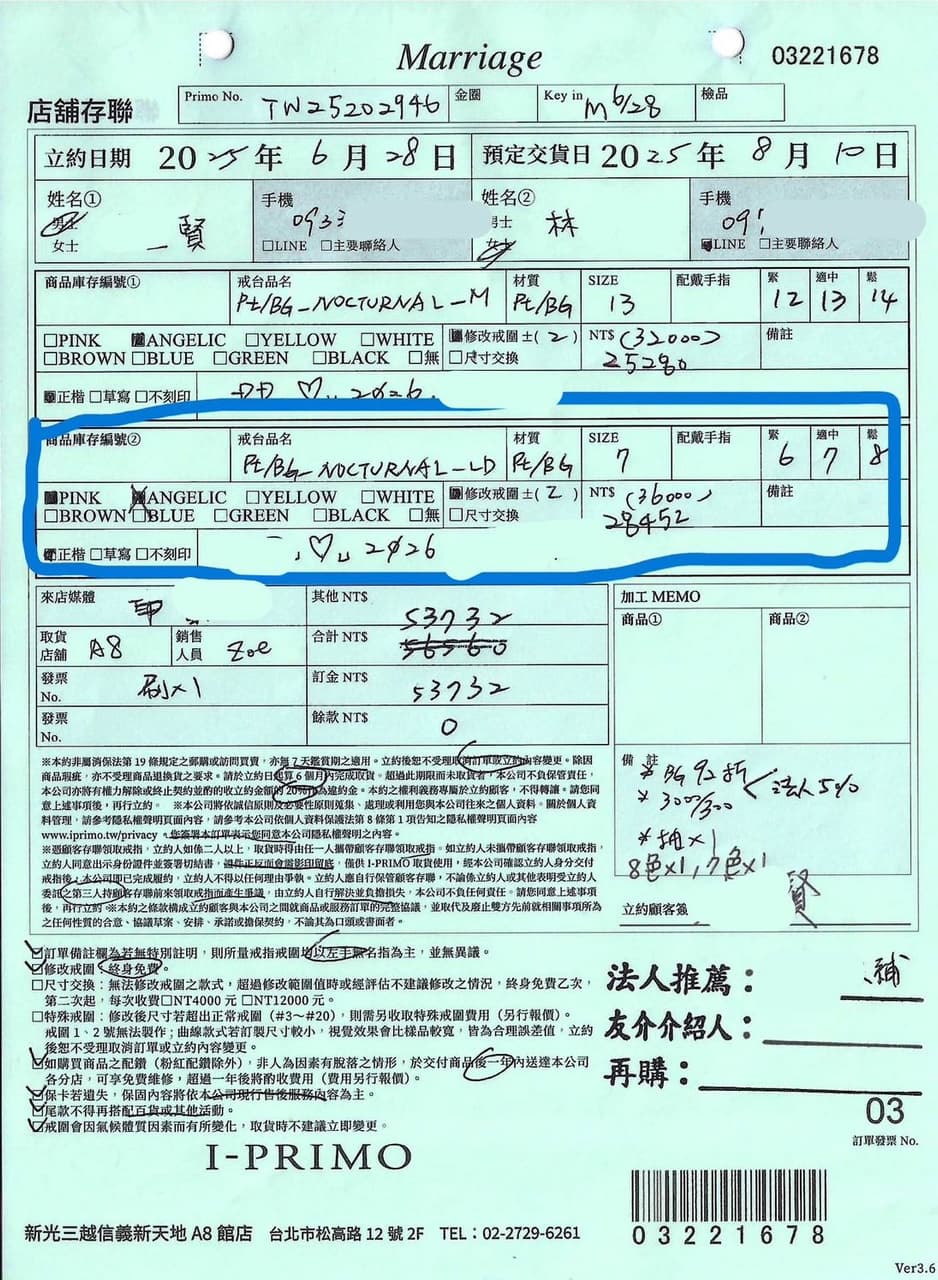 Marriage
03221678
店舖存聯
Primo No. TW25202946 金圈 Key in M 6/28 檢品
立約日期 2025年 6月 28日 預定交貨日 2025年 8月 10日
姓名① 手機 姓名② 手機
男士 賢 093 男士 林 09
女士 □LINE □主要聯絡人 女士 LINE □主要聯絡人
商品庫存編號① 戒台品名 材質 SIZE 配戴手指 緊 適中 鬆
Pt/BG_NOCTURNAL_M Pt/BG 13 12 13 14
□PINK ANGELIC □YELLOW □WHITE 修改戒圍±( 2 ) NT$ (32000) 備註
□BROWN □BLUE □GREEN □BLACK □無 □尺寸交換 25280
正楷 □草寫 □不刻印 ♡ 2026.
商品庫存編號② 戒台品名 材質 SIZE 配戴手指 緊 適中 鬆
Pt/BG_NOCTURNAL_LD Pt/BG 7 6 7 8
PINK ANGELIC □YELLOW □WHITE 修改戒圍±( 2 ) NT$ (36000) 備註
□BROWN □BLUE □GREEN □BLACK □無 □尺寸交換 28452
正楷 □草寫 □不刻印 ♡ 2026
來店媒體 其他 NT$ 加工 MEMO
53732 商品① 商品②
取貨店舖 A8 銷售人員 Zoe 合計 NT$ 56560
發票 No. 刷x1 訂金 NT$ 53732
發票 No. 餘款 NT$ 0
※本約非屬消保法第 19 條規定之郵購或訪問買賣，亦無 7 天鑑賞期之適用。立約後恕不受理取消訂單或立約內容變更。除因
商品瑕疵，亦不受理商品退換貨之要求。請於立約日起算 6 個月內完成取貨。超過此期限而未取貨者，本公司不負保管責任，
本公司亦將有權力解除或終止契約並酌的收立約金額的 20%作為違約金。本約之權利義務專屬於立約顧客，不得轉讓。請您同
意上述事項後，再行立約。 ※本公司將依誠信原則及必要性原則蒐集、處理或利用您與本公司往來之個人資料。關於個人資
料管理，請參考隱私權聲明頁面內容及本公司依個人資料保護法第 8 條第 1 項告知之隱私權聲明頁面內容
www.iprimo.tw/privacy。您簽署本訂單表示您同意本公司隱私權聲明之內容。
※憑顧客存聯領取戒指，立約人如係二人以上，取貨時得由任一人攜帶顧客存聯領取戒指。如立約人未攜帶顧客存聯領取戒指，
立約人同意出示身份證件並簽署切結書，證件正反面會需影印留底，僅供 I-PRIMO 取貨使用，經本公司確認立約人身分交付
戒指後，本公司即已完成履約，立約人不得以任何理由爭執。立約人應自行保管顧客存聯，不論係立約人或其他表明受立約人
委託之第三人持顧客存聯前來領取戒指而產生爭議，由立約人自行解決並負擔損失，本公司不負任何責任。請您同意上述事項
後，再行立約 ※本約之條款構成立約顧客與本公司之間就商品或服務訂單的完整協議，並取代及廢止雙方先前就相關事項所為
之任何性質的合意、協議草案、安排、承諾或擔保契約，不論其為口頭或書面者。
備 註
* BG 92折 法人5%
* 3000/300
* 抽x1
8色x1, 7色x1
立約顧客簽 賢
訂單備註欄為若無特別註明，則所量戒指戒圍均以左手無名指為主，並無異議。
修改戒圍：終身免費。
□尺寸交換：無法修改戒圍之款式，超過修改範圍值時或經評估不建議修改之情況，終身免費乙次，
第二次起，每次收費□NT4000 元 □NT12000 元。
□特殊戒圍：修改後尺寸若超出正常戒圍（#3～#20），則需另收取特殊戒圍費用（另行報價）。
戒圍 1、2 號無法製作；曲線款式若訂製尺寸較小，視覺效果會比樣品較寬，皆為合理誤差值，立約
後恕不受理取消訂單或立約內容變更。
如購買商品之配鑽（粉紅配鑽除外），非人為因素有脫落之情形，於交付商品後一年內送達本公司
各分店，可享免費維修，超過一年後將酌收費用（費用另行報價）。
保卡若遺失，保固內容將依本公司現行售後服務內容為主。
尾款不得再搭配百貨或其他活動。
戒圍會因氣候體質因素而有所變化，取貨時不建議立即變更。
法人推薦：
友介介紹人：
再購：
03
訂單發票 No.
I-PRIMO
新光三越信義新天地 A8 館店 台北市松高路 12 號 2F TEL：02-2729-6261
03221678
Ver3.6